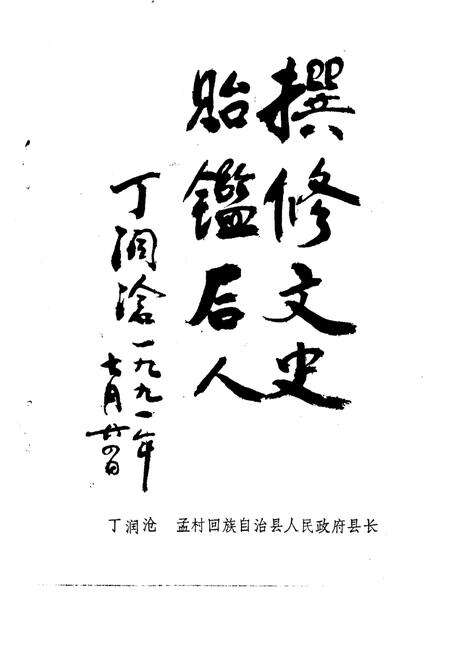 撰修文史
贻鑑后人
丁润沧一九九一年
七月廿四日
丁润沧 孟村回族自治县人民政府县长